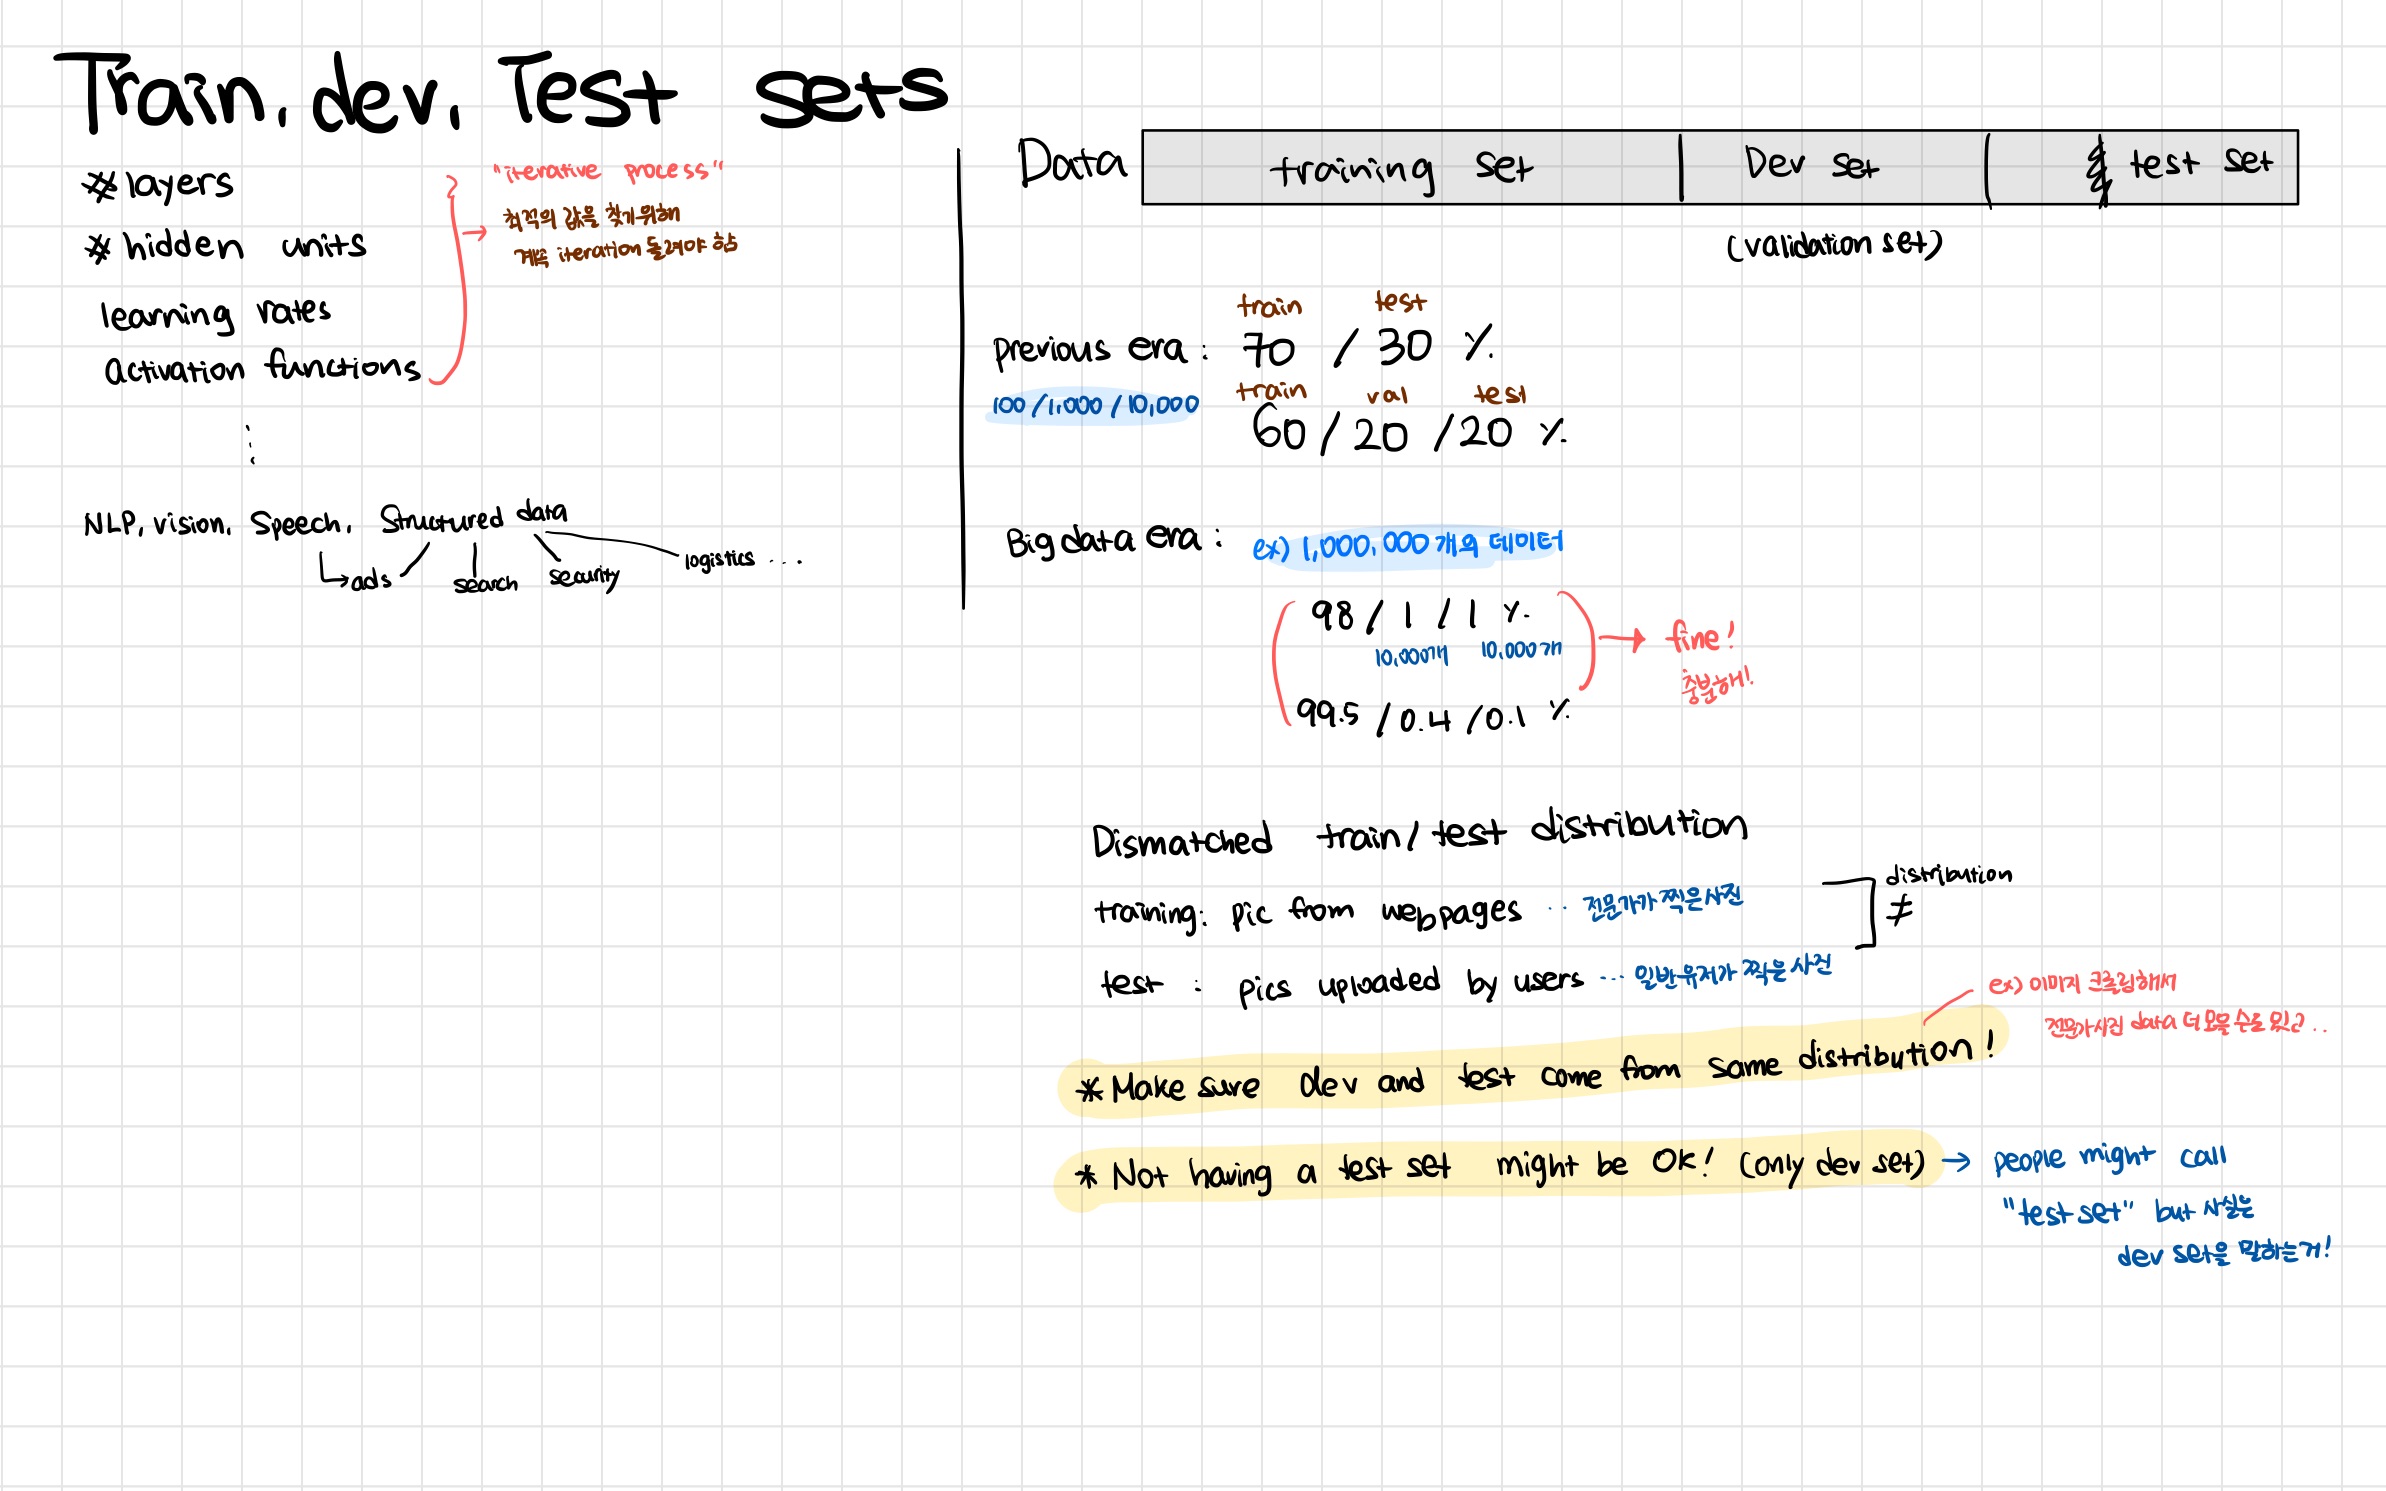 Train, dev, Test sets
# layers
# hidden units
learning rates
activation functions
⋮
"iterative process"
최적의 값을 찾기위해
계속 iteration 돌려야 함
NLP, vision, Speech, Structured data
ads
search
security
logistics ...
Data
training set
Dev set
test set
(validation set)
train test
previous era : 70 / 30 %
100 / 1,000 / 10,000
train val test
60 / 20 / 20 %
Big data era : ex) 1,000,000개의 데이터
98 / 1 / 1 %
10,000개 10,000개
99.5 / 0.4 / 0.1 %
fine!
충분해!
Dismatched train / test distribution
training: pic from webpages ·· 전문가가 찍은사진
test : pics uploaded by users ··· 일반유저가 찍은 사진
distribution
≠
ex) 이미지 크롤링해서
전문가사진 data 더 모을 수도 있고..
* Make sure dev and test come from same distribution!
* Not having a test set might be OK! (only dev set) → people might call
"test set" but 사실은
dev set을 말하는거!